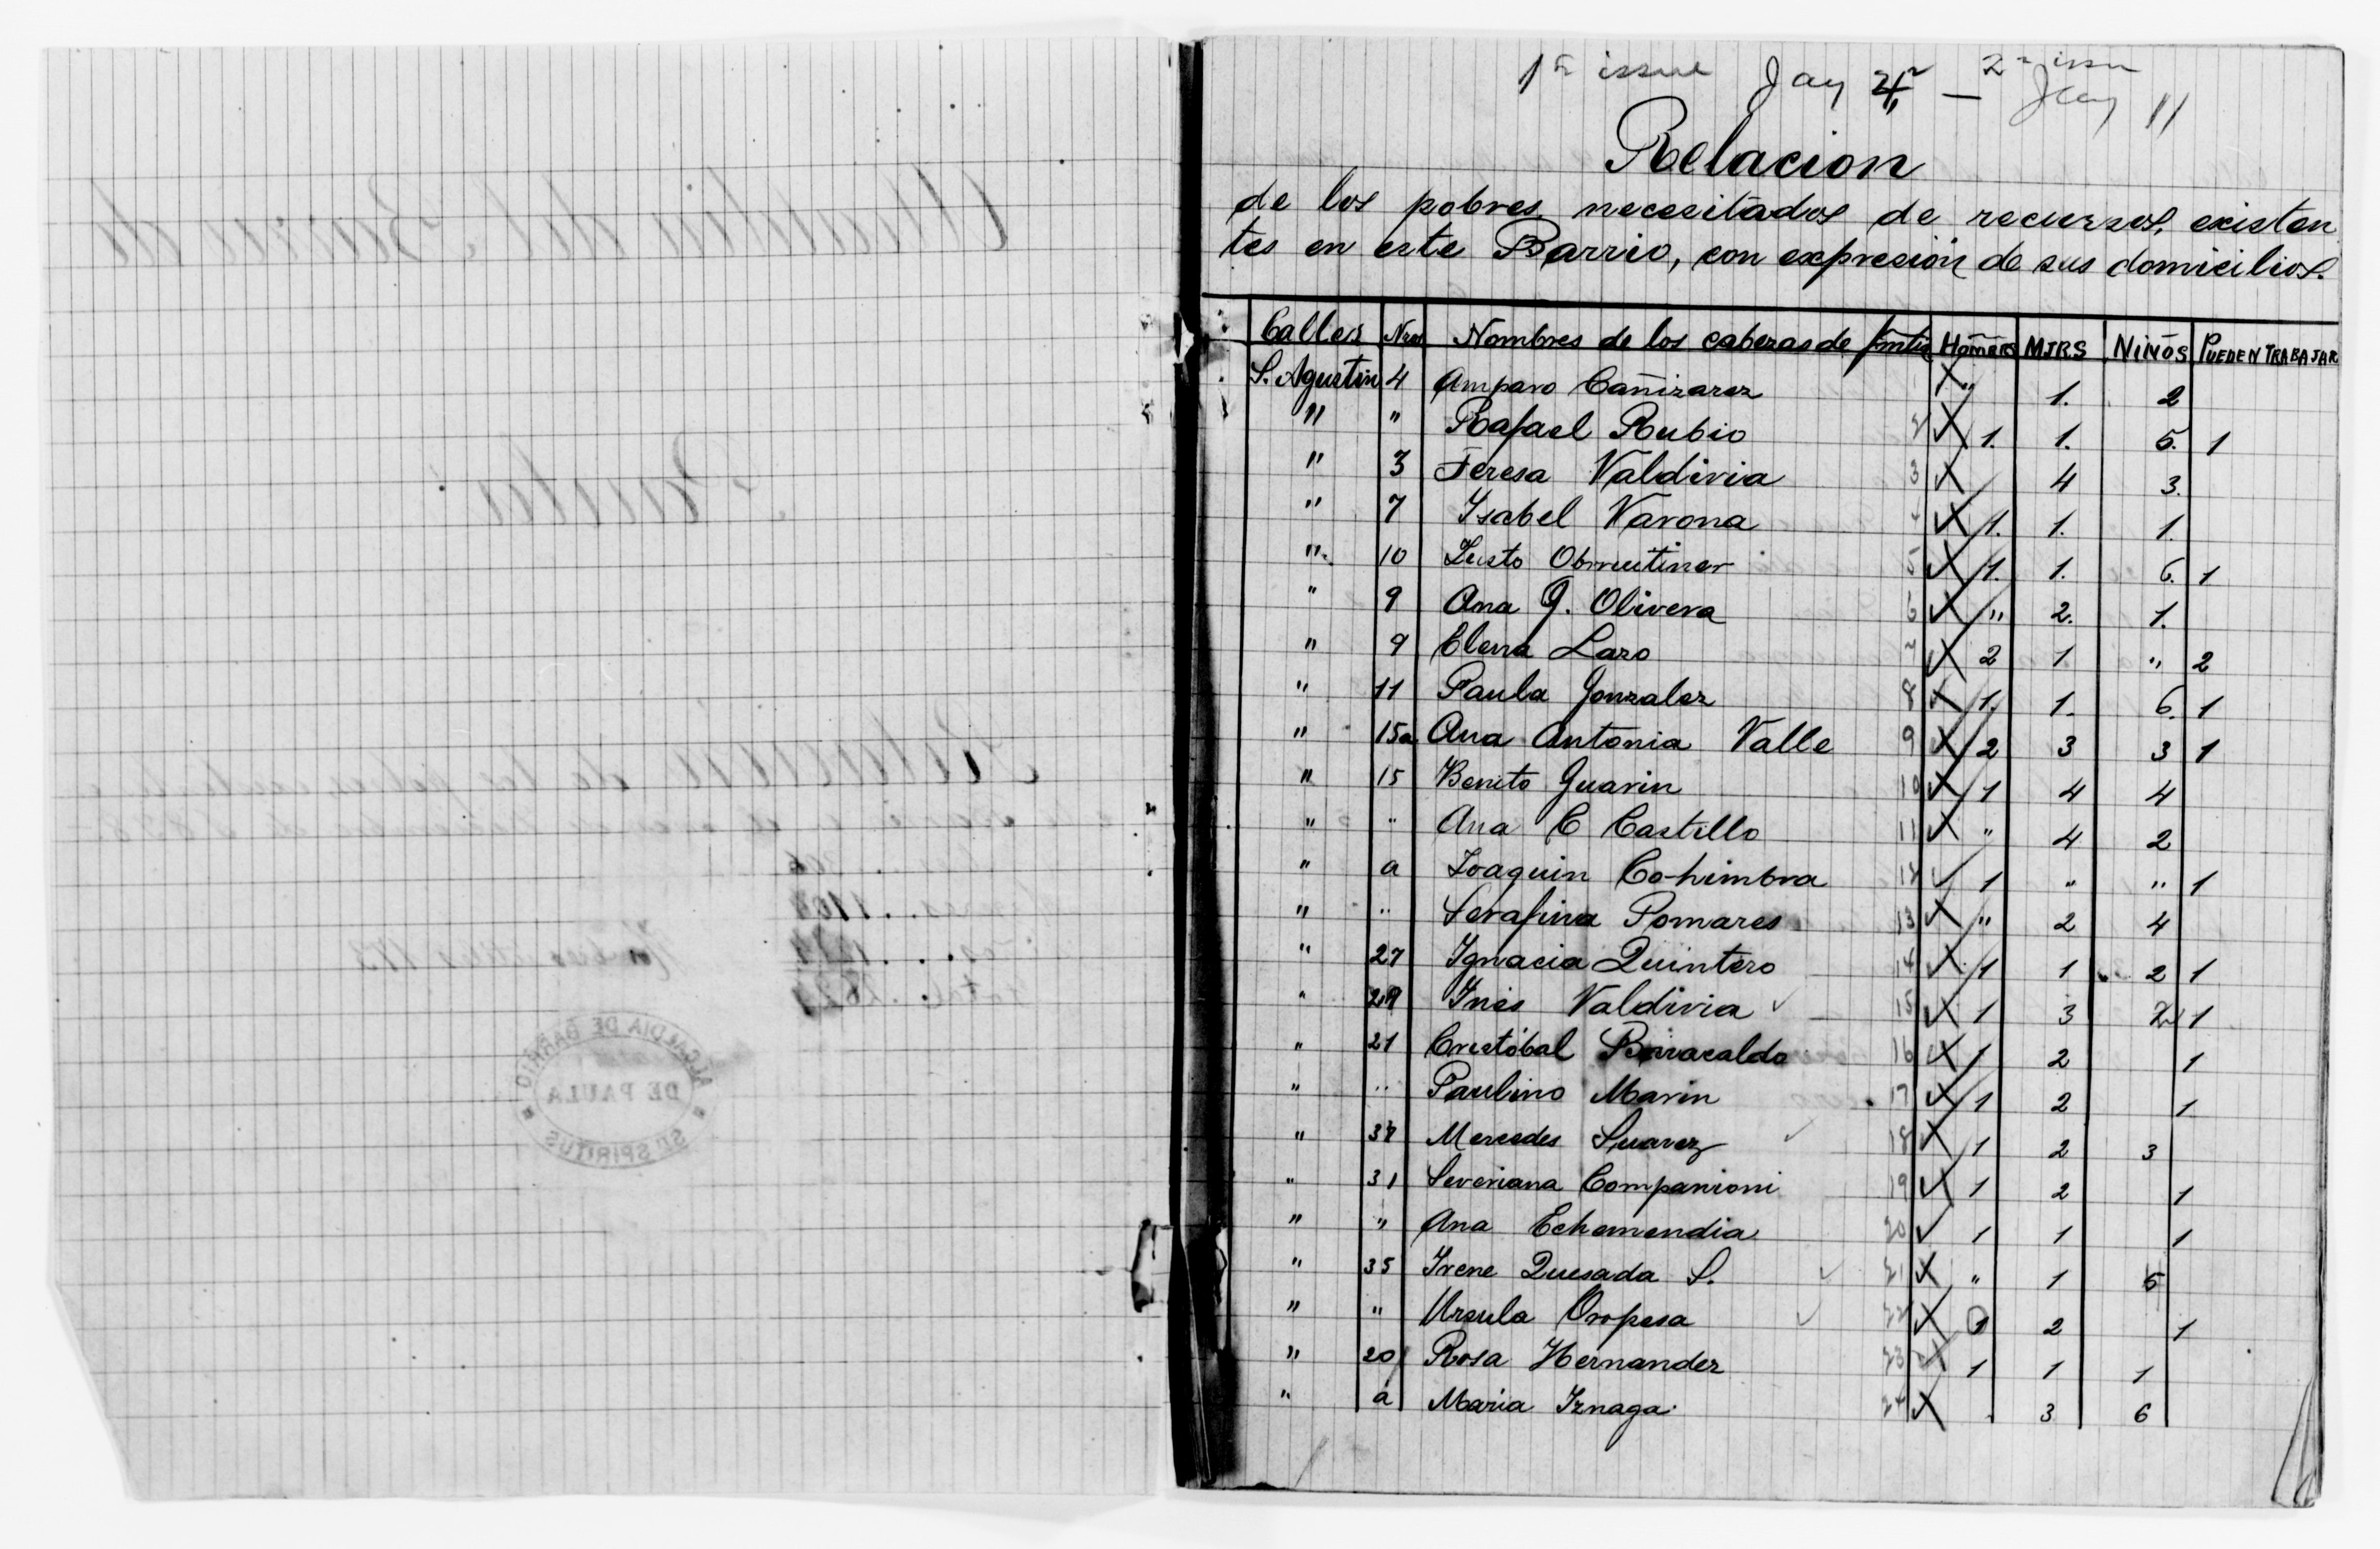 1ª issue Jany 4 — 2ª issu
Jany 11
Relacion
de los pobres necesitados de recursos, existen
tes en este Barrio, con expresión de sus domicilios.
Calles Nros Nombres de los cabezas de fmlia Hombrs MJRS NIÑOS PUEDEN TRABAJAR
S. Agustin 4 Amparo Cañizarez X " 1. 2
" " Rafael Rubio 2 X 1. 1. 5. 1
" 3 Teresa Valdivia 3 X 4 3.
" 7 Isabel Varona 4 X 1. 1. 1.
" 10 Justo Obrrutiner 5 X 1. 1. 6. 1
" 9 Ana G. Olivera 6 X " 2. 1.
" 9 Elena Lazo 7 X 2 1 " 2
" 11 Paula Gonzalez 8 X 1. 1. 6. 1
" 15a Ana Antonia Valle 9 X 2 3 3 1
" 15 Benito Guarin 10 X 1 4 4
" " Ana C Castillo 11 X " 4 2
" a Joaquin Cohimbra 12 ✓ 1 " " 1
" " Serafina Pomares 13 X " 2 4
" 27 Ignacia Quintero 14 X 1 1 2 1
" 29 Inés Valdivia ✓ 15 X 1 3 2 1
" 21 Cristóbal Baracaldo 16 X 1 2 1
" " Paulino Marin 17 X 1 2 1
" 37 Mercedes Suarez ✓ 18 X 1 2 3
" 31 Severiana Companioni 19 X 1 2 1
" " Ana Echemendia 20 ✓ 1 1 1
" 35 Irene Quesada S. ✓ 21 X " 1 5
" " Ursula Oropesa ✓ 22 X 1 2 1
" 20 Rosa Hernandez 23 X 1 1 1
" a Maria Iznaga. 24 X . 3 6
ALCALDIA DE BARRIO
DE PAULA
STI SPIRITUS